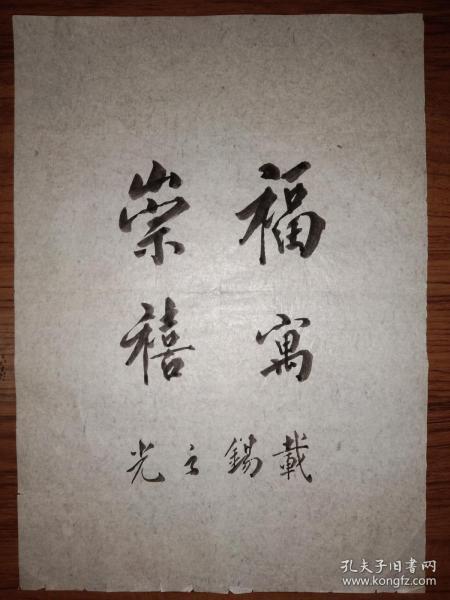 福寓
崇禧
載錫之光
孔夫子旧书网
www.kongfz.com